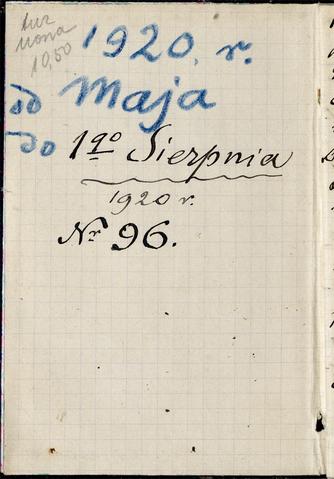 10,50
1920. r.
od Maja
do 1go Sierpnia
1920 r.
Nr 96.